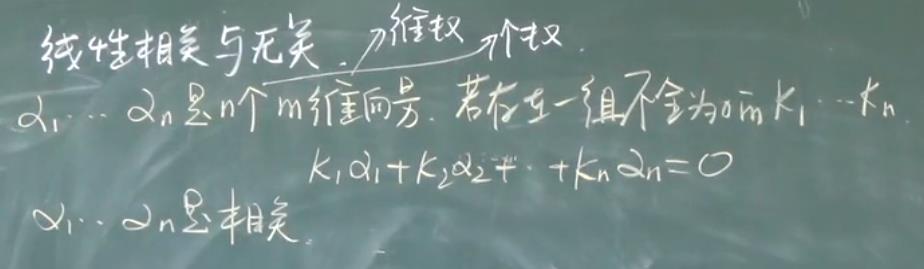 线性相关与无关. 维权 个权.
α₁…αₙ是n个m维向量.若存在一组不全为0的K₁…Kₙ.
K₁α₁+K₂α₂+…+Kₙαₙ=0
α₁…αₙ是相关.